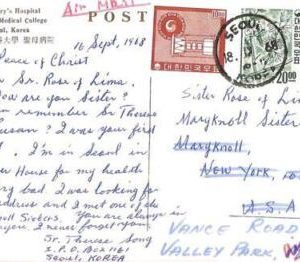 ry's Hospital
Medical College
ul, Korea
大學 聖母病院
Air Mail
POST
16 Sept, 1968
Peace of Christ
Sr. Rose of Lima
ow are you Sister?
remember Sr. Therese
Susan? I was your first
I'm in Seoul in
er House for my health
ry bad. I was looking for
ddress and I met one of
Sisters. You are always in
I never forget you
Sr. Therese Song
I. P.O. Box 1161
Seoul, KOREA
대한민국우표
10.00
SEOUL
68
20.00
Sister Rose of Lima
Maryknoll Sister
Maryknoll,
New York,
U.S.A
VANCE ROAD
VALLEY PARK,